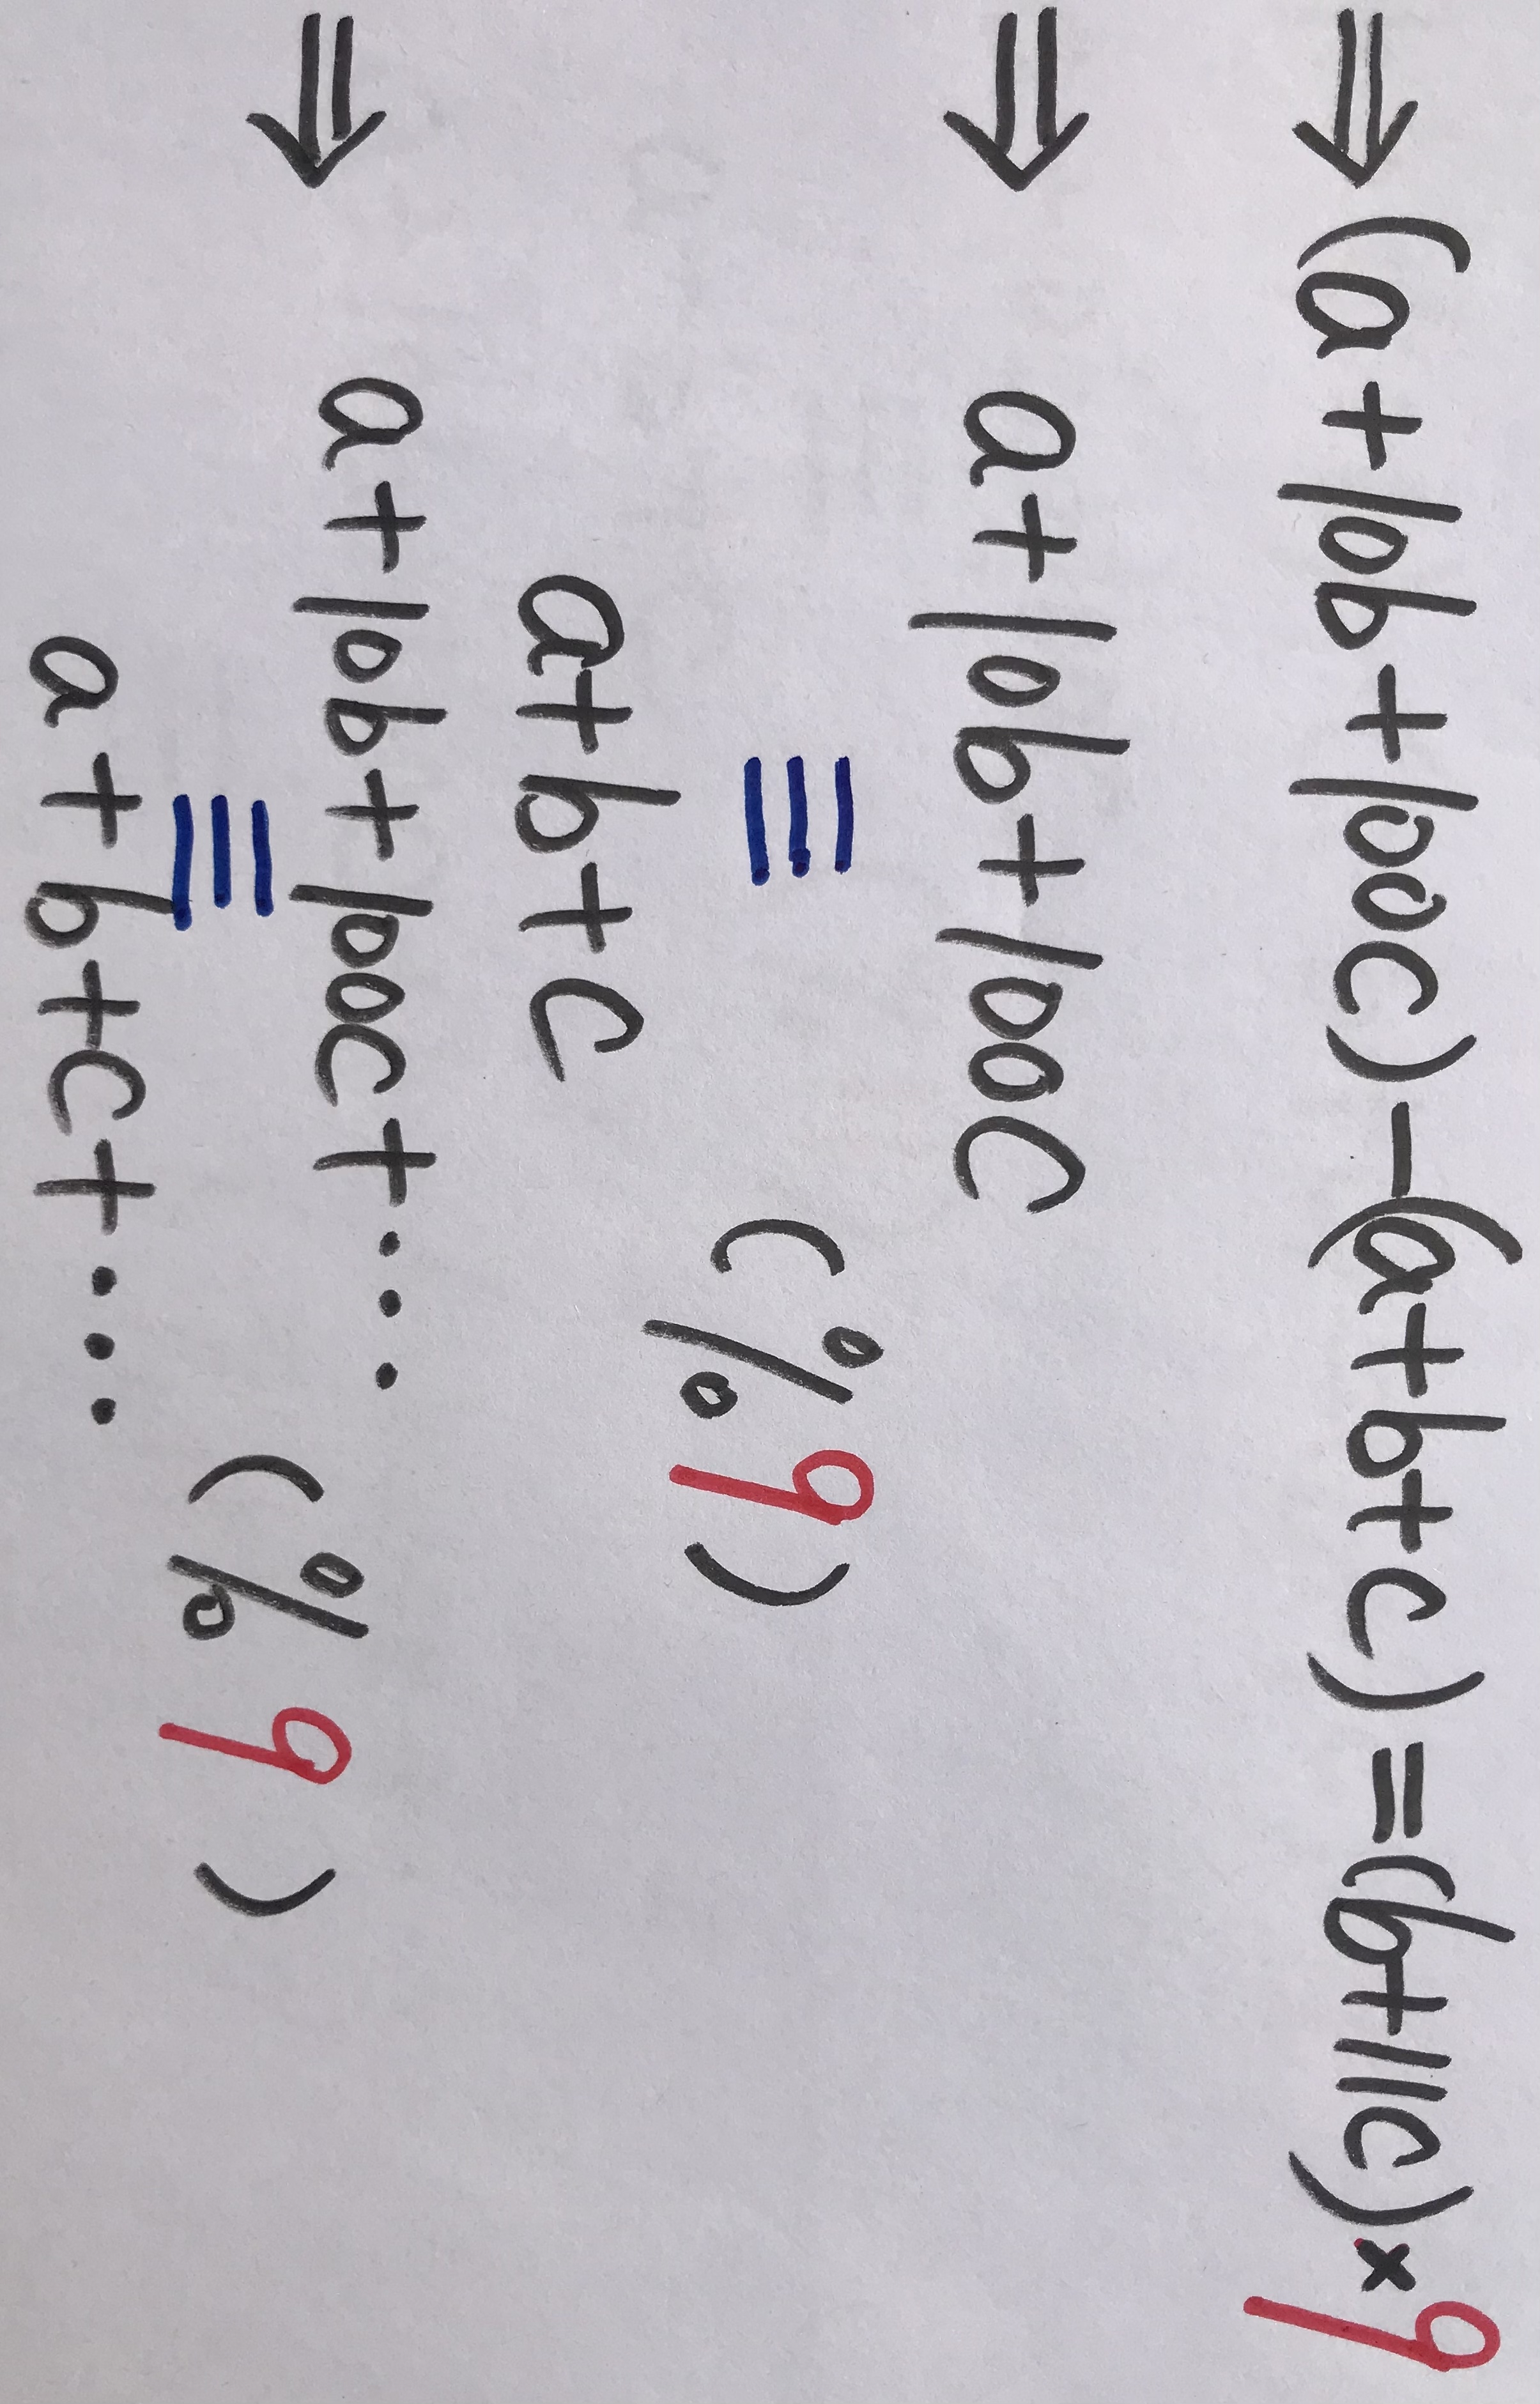 ⇒ (a+10b+100c)-(a+b+c)=(b+11c)×9
⇒ a+10b+100c
≡ (%9)
a+b+c
⇒ a+10b+100c+···
≡ (%9)
a+b+c+···